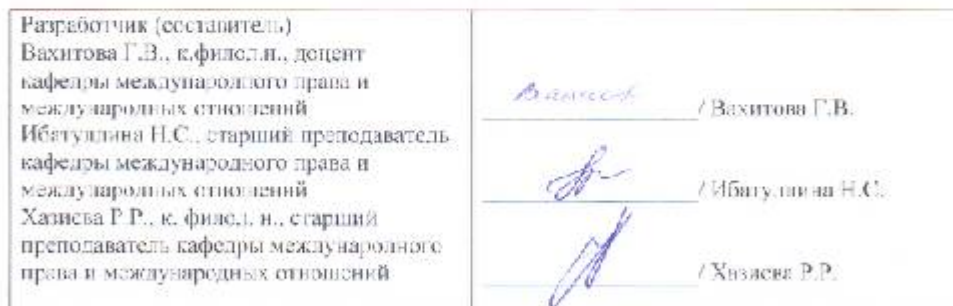 Разработчик (составитель)
Вахитова Г.В., к.филол.н., доцент
кафедры международного права и
международных отношений
Ибатуллина Н.С., старший преподаватель
кафедры международного права и
международных отношений
Хазиева Р.Р., к. филол. н., старший
преподаватель кафедры международного
права и международных отношений
/ Вахитова Г.В.
/ Ибатуллина Н.С.
/ Хазиева Р.Р.